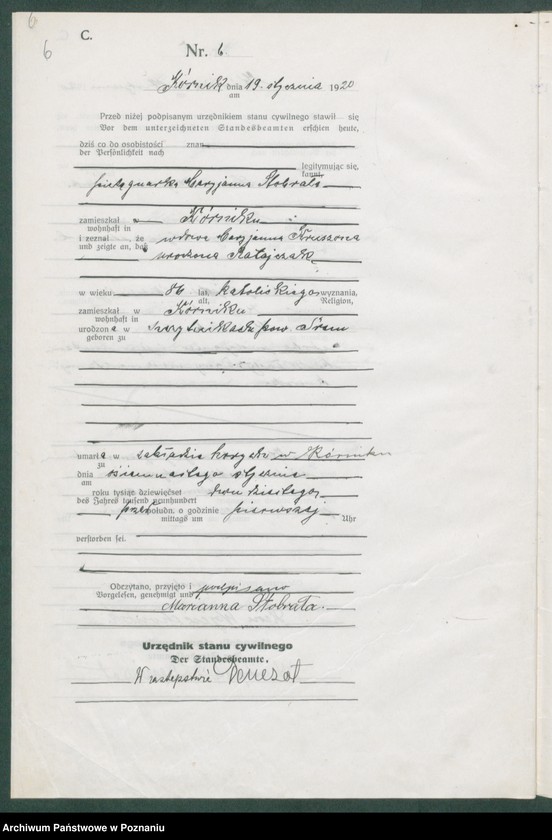 6
6
C.
Nr. 6
Kórnik dnia 19. stycznia 1920
am
Przed niżej podpisanym urzędnikiem stanu cywilnego stawił się
Vor dem unterzeichneten Standesbeamten erschien heute,
dziś co do osobistości znan
der Persönlichkeit nach
legitymując się,
kannt,
Maryjanna Stobrata
zamieszkał w Kórniku
wohnhaft in
i zeznał, że wdowa Maryjanna
und zeigte an, daß urodzona Ratajczak
w wieku 86 lat, katolickiego wyznania,
alt, Religion,
zamieszkał w Kórniku
wohnhaft in
urodzona w pow. Śrem
geboren zu
umarła w zakładzie w Kórniku
zu
dnia ósiemnastego stycznia
am
roku tysiąc dziewięćset dwudziestego
des Jahres tausend neunhundert
przed połudn. o godzinie pierwszej
mittags um Uhr
verstorben sei.
Odczytano, przyjęto i podpisano
Vorgelesen, genehmigt und
Marianna Stobrata.
Urzędnik stanu cywilnego
Der Standesbeamte.
W zastępstwie
Archiwum Państwowe w Poznaniu